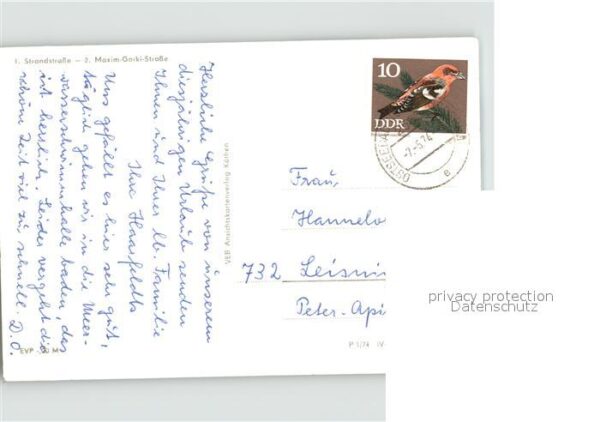 1. Strandstraße – 2. Maxim-Gorki-Straße
Herzliche Grüße von unserem
diesjährigen Urlaub senden
Ihnen und Ihrer lb. Familie
Ihre Haasfeldts
Uns gefällt es hier sehr gut,
täglich gehen wir in die Meer-
wasserschwimmhalle baden, das
ist herrlich. Leider vergeht die
schöne Zeit viel zu schnell. D. O.
EVP M
VEB Ansichtskartenverlag Köthen
P 1/74 IV-
10
DDR
OSTSEE
-7.-5.74
e
Frau
Hannelo
732 Leisni
Peter-Api
privacy protection
Datenschutz